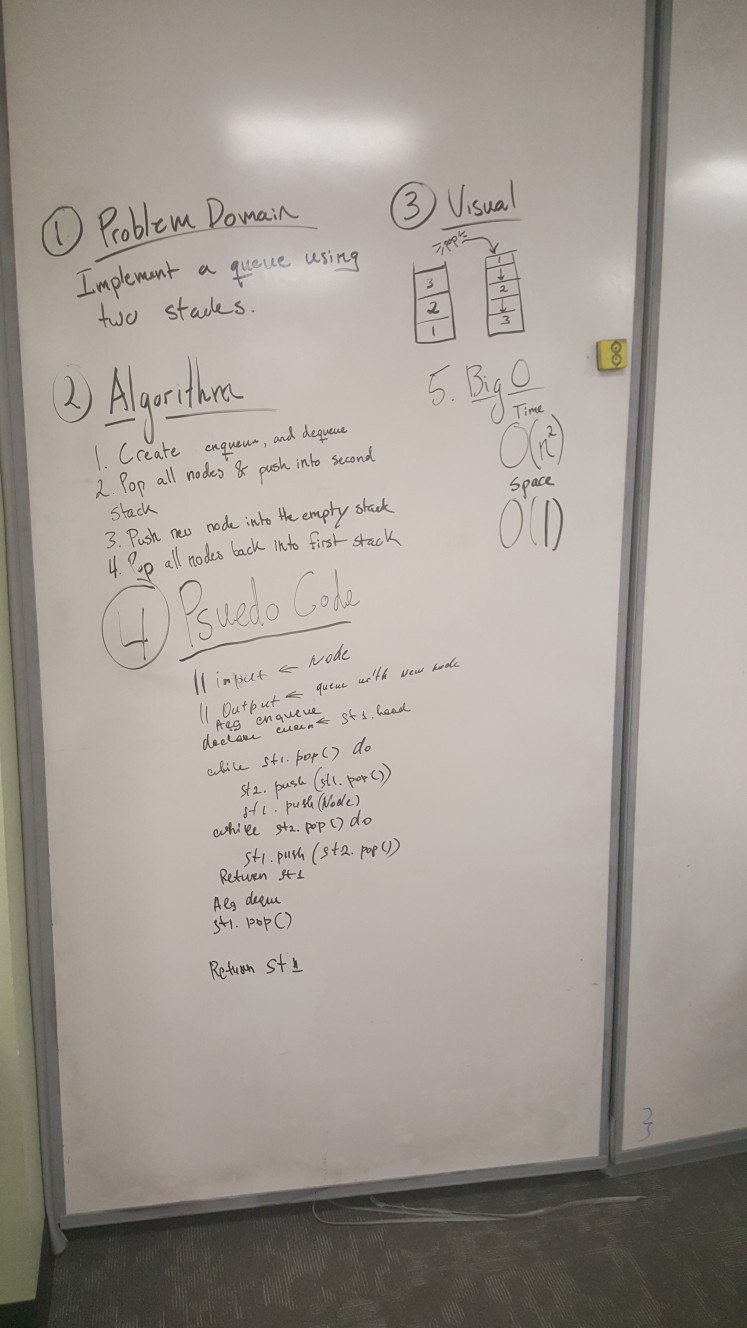 ① Problem Domain
Implement a queue using
two stacks.
② Algorithm
1. Create enqueue, and dequeue
2. Pop all nodes & push into second
stack
3. Push new node into the empty stack
4. Pop all nodes back into first stack
③ Visual
pop
3
2
1
1
2
3
④ Psuedo Code
// input ← Node
// Output ← queue with new node
Alg enqueue
declare ← st1.head
while st1.pop() do
st2.push(st1.pop())
st1.push(Node)
while st2.pop() do
st1.push(st2.pop())
Return st1
Alg deque
st1.pop()
Return st1
5. Big O
Time
O(n²)
Space
O(1)
2
3